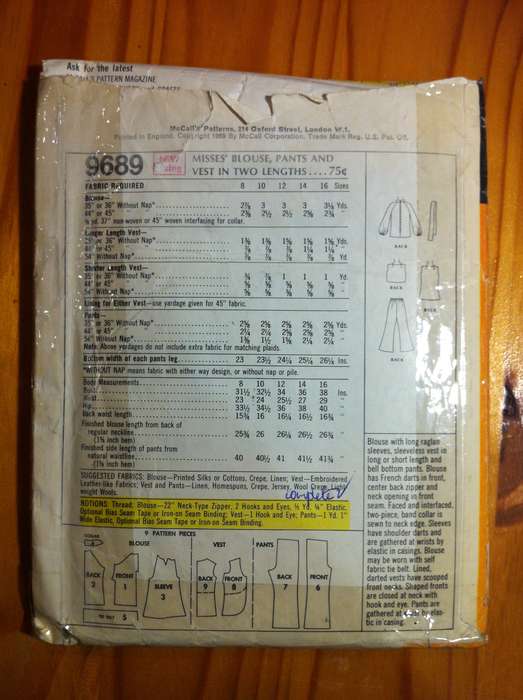 Ask for the latest
PATTERN MAGAZINE
McCall's Patterns, 214 Oxford Street, London W.1.
Printed in England. Copyright 1969 By McCall Corporation. Trade Mark Reg. U.S. Pat. Off.
9689
MISSES' BLOUSE, PANTS AND
VEST IN TWO LENGTHS....75¢
FABRIC REQUIRED 8 10 12 14 16 Sizes
Blouse—
35" or 36" Without Nap* 2⅞ 3 3 3 3⅛ Yds.
44" or 45" Without Nap*
⅝ yd. 37" non-woven or 45" woven interfacing for collar.
Longer Length Vest—
35" or 36" Without Nap*
44" or 45"
54" Without Nap* Yd.
Shorter Length Vest—
35" or 36" Without Nap* ¾ ⅞ 1 1 1 Yd.
44" or 45"
54" Without Nap*
Lining for Either Vest—use yardage given for 45" fabric.
Pants—
35" or 36" Without Nap* Yds.
44" or 45"
54" Without Nap*
Note: Above yardages do not include extra fabric for matching plaids.
Bottom width of each pants leg 23 23½ 24¼ 25¼ 26¼ Ins.
*WITHOUT NAP means fabric with either way design, or without nap or pile.
Body Measurements 8 10 12 14 16
Bust 31½ 32½ 34 36 38 Ins.
Waist 23 24 25½ 27 29
Hip 33½ 34½ 36 38 40
Back waist length 15¾ 16 16¼ 16½ 16¾
Finished blouse length from back of
regular neckline 25¾ 26 26¼ 26½ 26¾
(1⅝ inch hem)
Finished side length of pants from
natural waistline 40 40½ 41 41½ 41¾
(1⅝ inch hem)
SUGGESTED FABRICS: Blouse—Printed Silks or Cottons, Crepe, Linen; Vest—Embroidered
Leather-like Fabrics; Vest and Pants—Linen, Homespuns, Crepe, Jersey, Wool Crepe, Light
weight Wools.
complete
NOTIONS: Thread; Blouse—22" Neck-Type Zipper, 2 Hooks and Eyes, ½ Yd. ¼" Elastic,
Optional Bias Seam Tape or Iron-on Seam Binding; Vest—1 Hook and Eye; Pants—1 Yd. 1"
Wide Elastic, Optional Bias Seam Tape or Iron-on Seam Binding.
9 PATTERN PIECES
COLLAR
4
BLOUSE
VEST
PANTS
BACK
2
FRONT
1
SLEEVE
3
BACK
9
FRONT
8
BACK
7
FRONT
6
TIE BELT 5
BACK
BACK
BACK
Blouse with long raglan
sleeves, sleeveless vest in
long or short length and
bell bottom pants. Blouse
has French darts in front,
center back zipper and
neck opening in front
seam. Faced and interfaced,
two-piece, band collar is
sewn to neck edge. Sleeves
have shoulder darts and
are gathered at wrists by
elastic in casings. Blouse
may be worn with self
fabric tie belt. Lined,
darted vests have scooped
front necks. Shaped fronts
are closed at neck with
hook and eye. Pants are
gathered at waist by elas-
tic in casing.